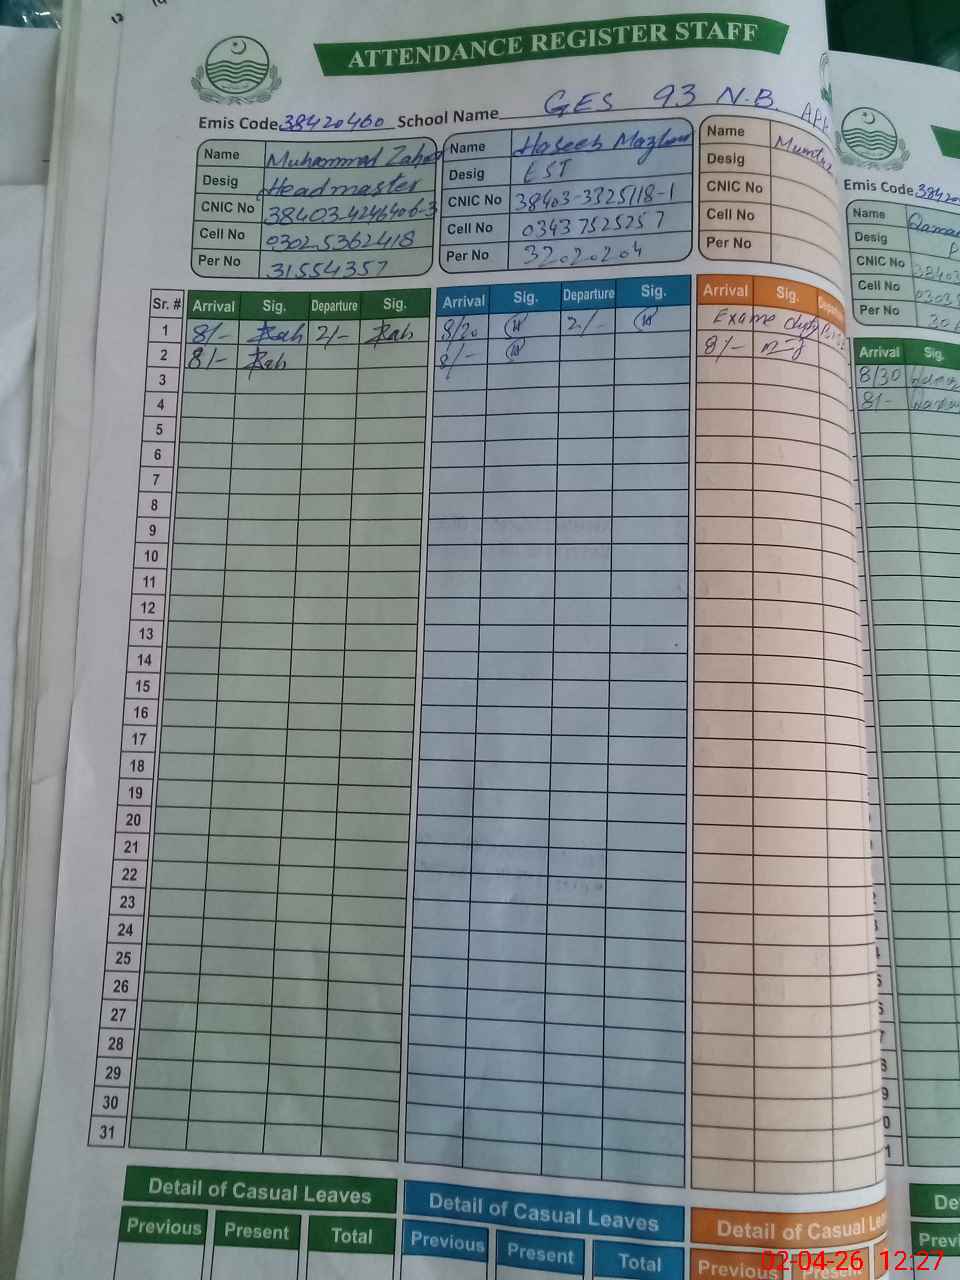 ATTENDANCE REGISTER STAFF
Emis Code 38420460 School Name GES 93 N.B.
Name Muhammad
Desig Headmaster
CNIC No 38403-4246406-3
Cell No 0302 5362418
Per No 31554357
Name Haseeb Mazhar
Desig EST
CNIC No 38403-3325118-1
Cell No 0343 7525257
Per No 32020204
Name
Desig
CNIC No
Cell No
Per No
Emis Code
Name
Desig
CNIC No
Cell No
Per No
Sr. # Arrival Sig. Departure Sig. Arrival Sig. Departure Sig. Arrival Sig.
Arrival Sig.
1 8/- 2/- 8/20 2/- Exame duty
8/30
2 8/- 8/- 8/-
8/-
3
4
5
6
7
8
9
10
11
12
13
14
15
16
17
18
19
20
21
22
23
24
25
26
27
28
29
30
31
Detail of Casual Leaves Detail of Casual Leaves Detail of Casual
Previous Present Total Previous Present Total Previous Present
02-04-26 12:27